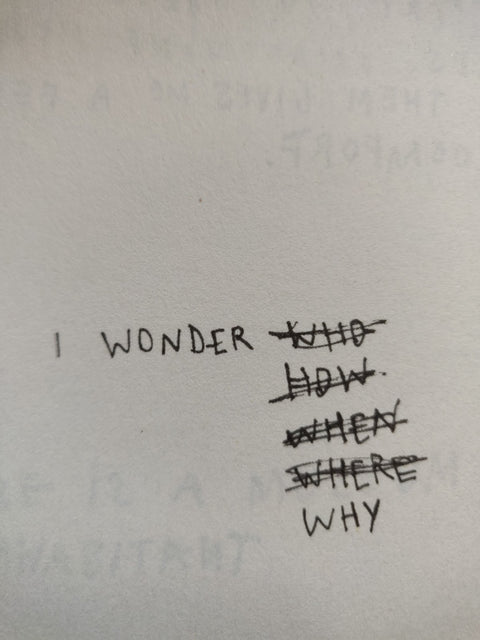 I WONDER WHO
HOW
WHEN
WHERE
WHY